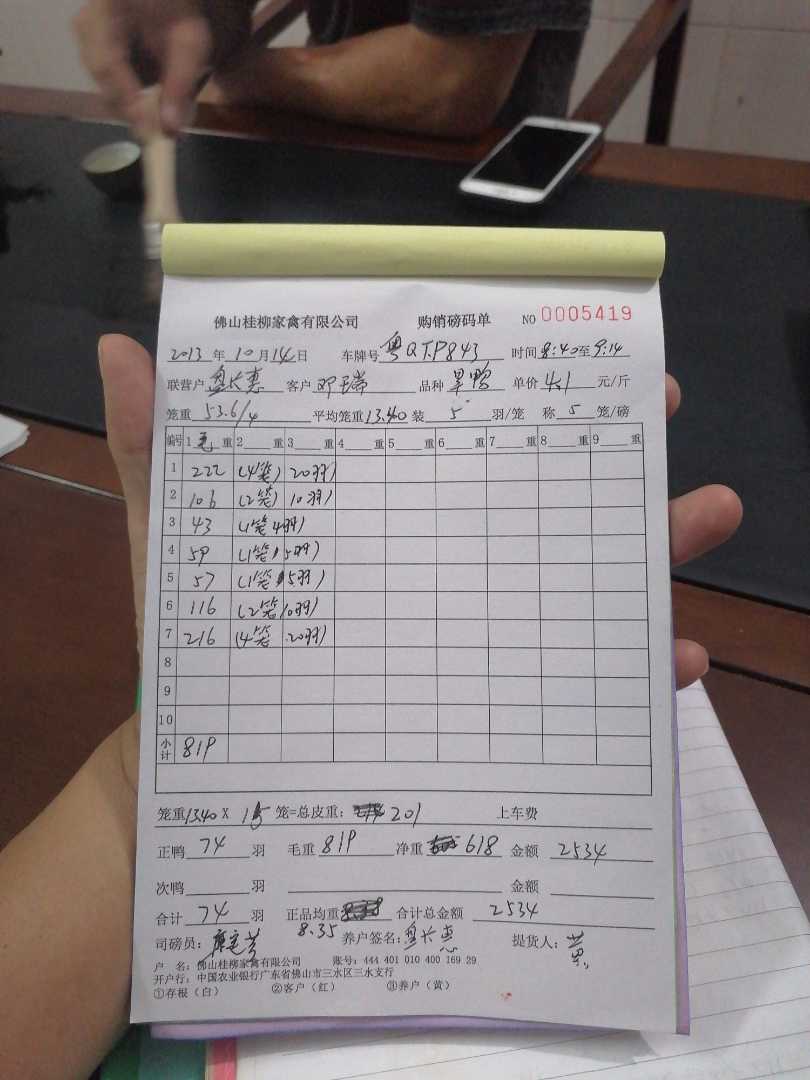 佛山桂柳家禽有限公司 购销磅码单 NO 0005419
2013 年 10 月 14 日 车牌号 粤Q T.P843 时间 8:40至9:14
联营户 盘长惠 客户 邓 品种 旱鸭 单价 4.1 元/斤
笼重 53.6/4 平均笼重 13.40 装 5 羽/笼 称 5 笼/磅
编号 1 毛 重 2 重 3 重 4 重 5 重 6 重 7 重 8 重 9 重
1 222 (4笼) 20羽)
2 106 (2笼) 10羽)
3 43 (1笼 4羽)
4 59 (1笼 5羽)
5 57 (1笼 5羽)
6 116 (2笼 10羽)
7 216 (4笼 20羽)
8
9
10
小计 819
笼重 13.40 X 15 笼=总皮重: 201 上车费
正鸭 74 羽 毛重 819 净重 618 金额 2534
次鸭 羽 金额
合计 74 羽 正品均重 8.35 合计总金额 2534
司磅员: 养户签名: 盘长惠 提货人:
户 名: 佛山桂柳家禽有限公司 账号: 444 401 010 400 169 29
开户行: 中国农业银行广东省佛山市三水区三水支行
①存根（白） ②客户（红） ③养户（黄）